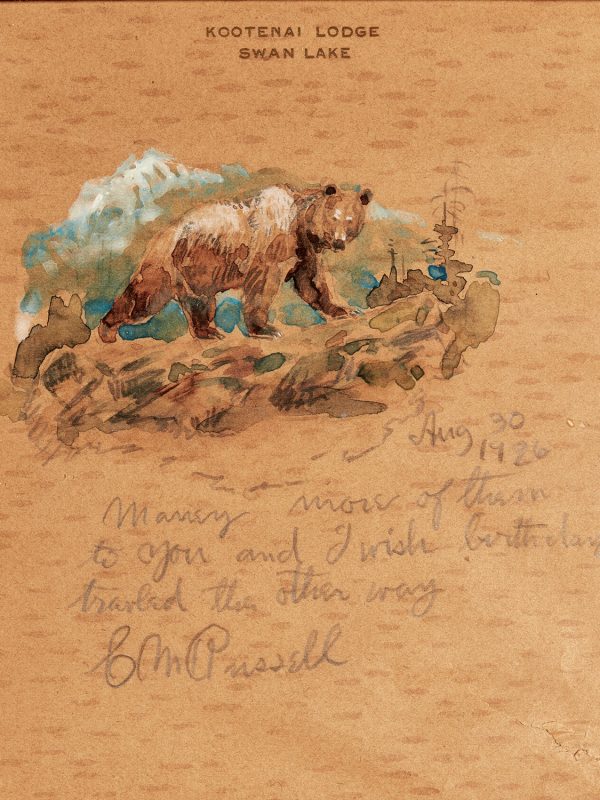 KOOTENAI LODGE
SWAN LAKE
Aug 30
1926
Maney more of them
to you and I wish birthday
travled the other way
C M Russell